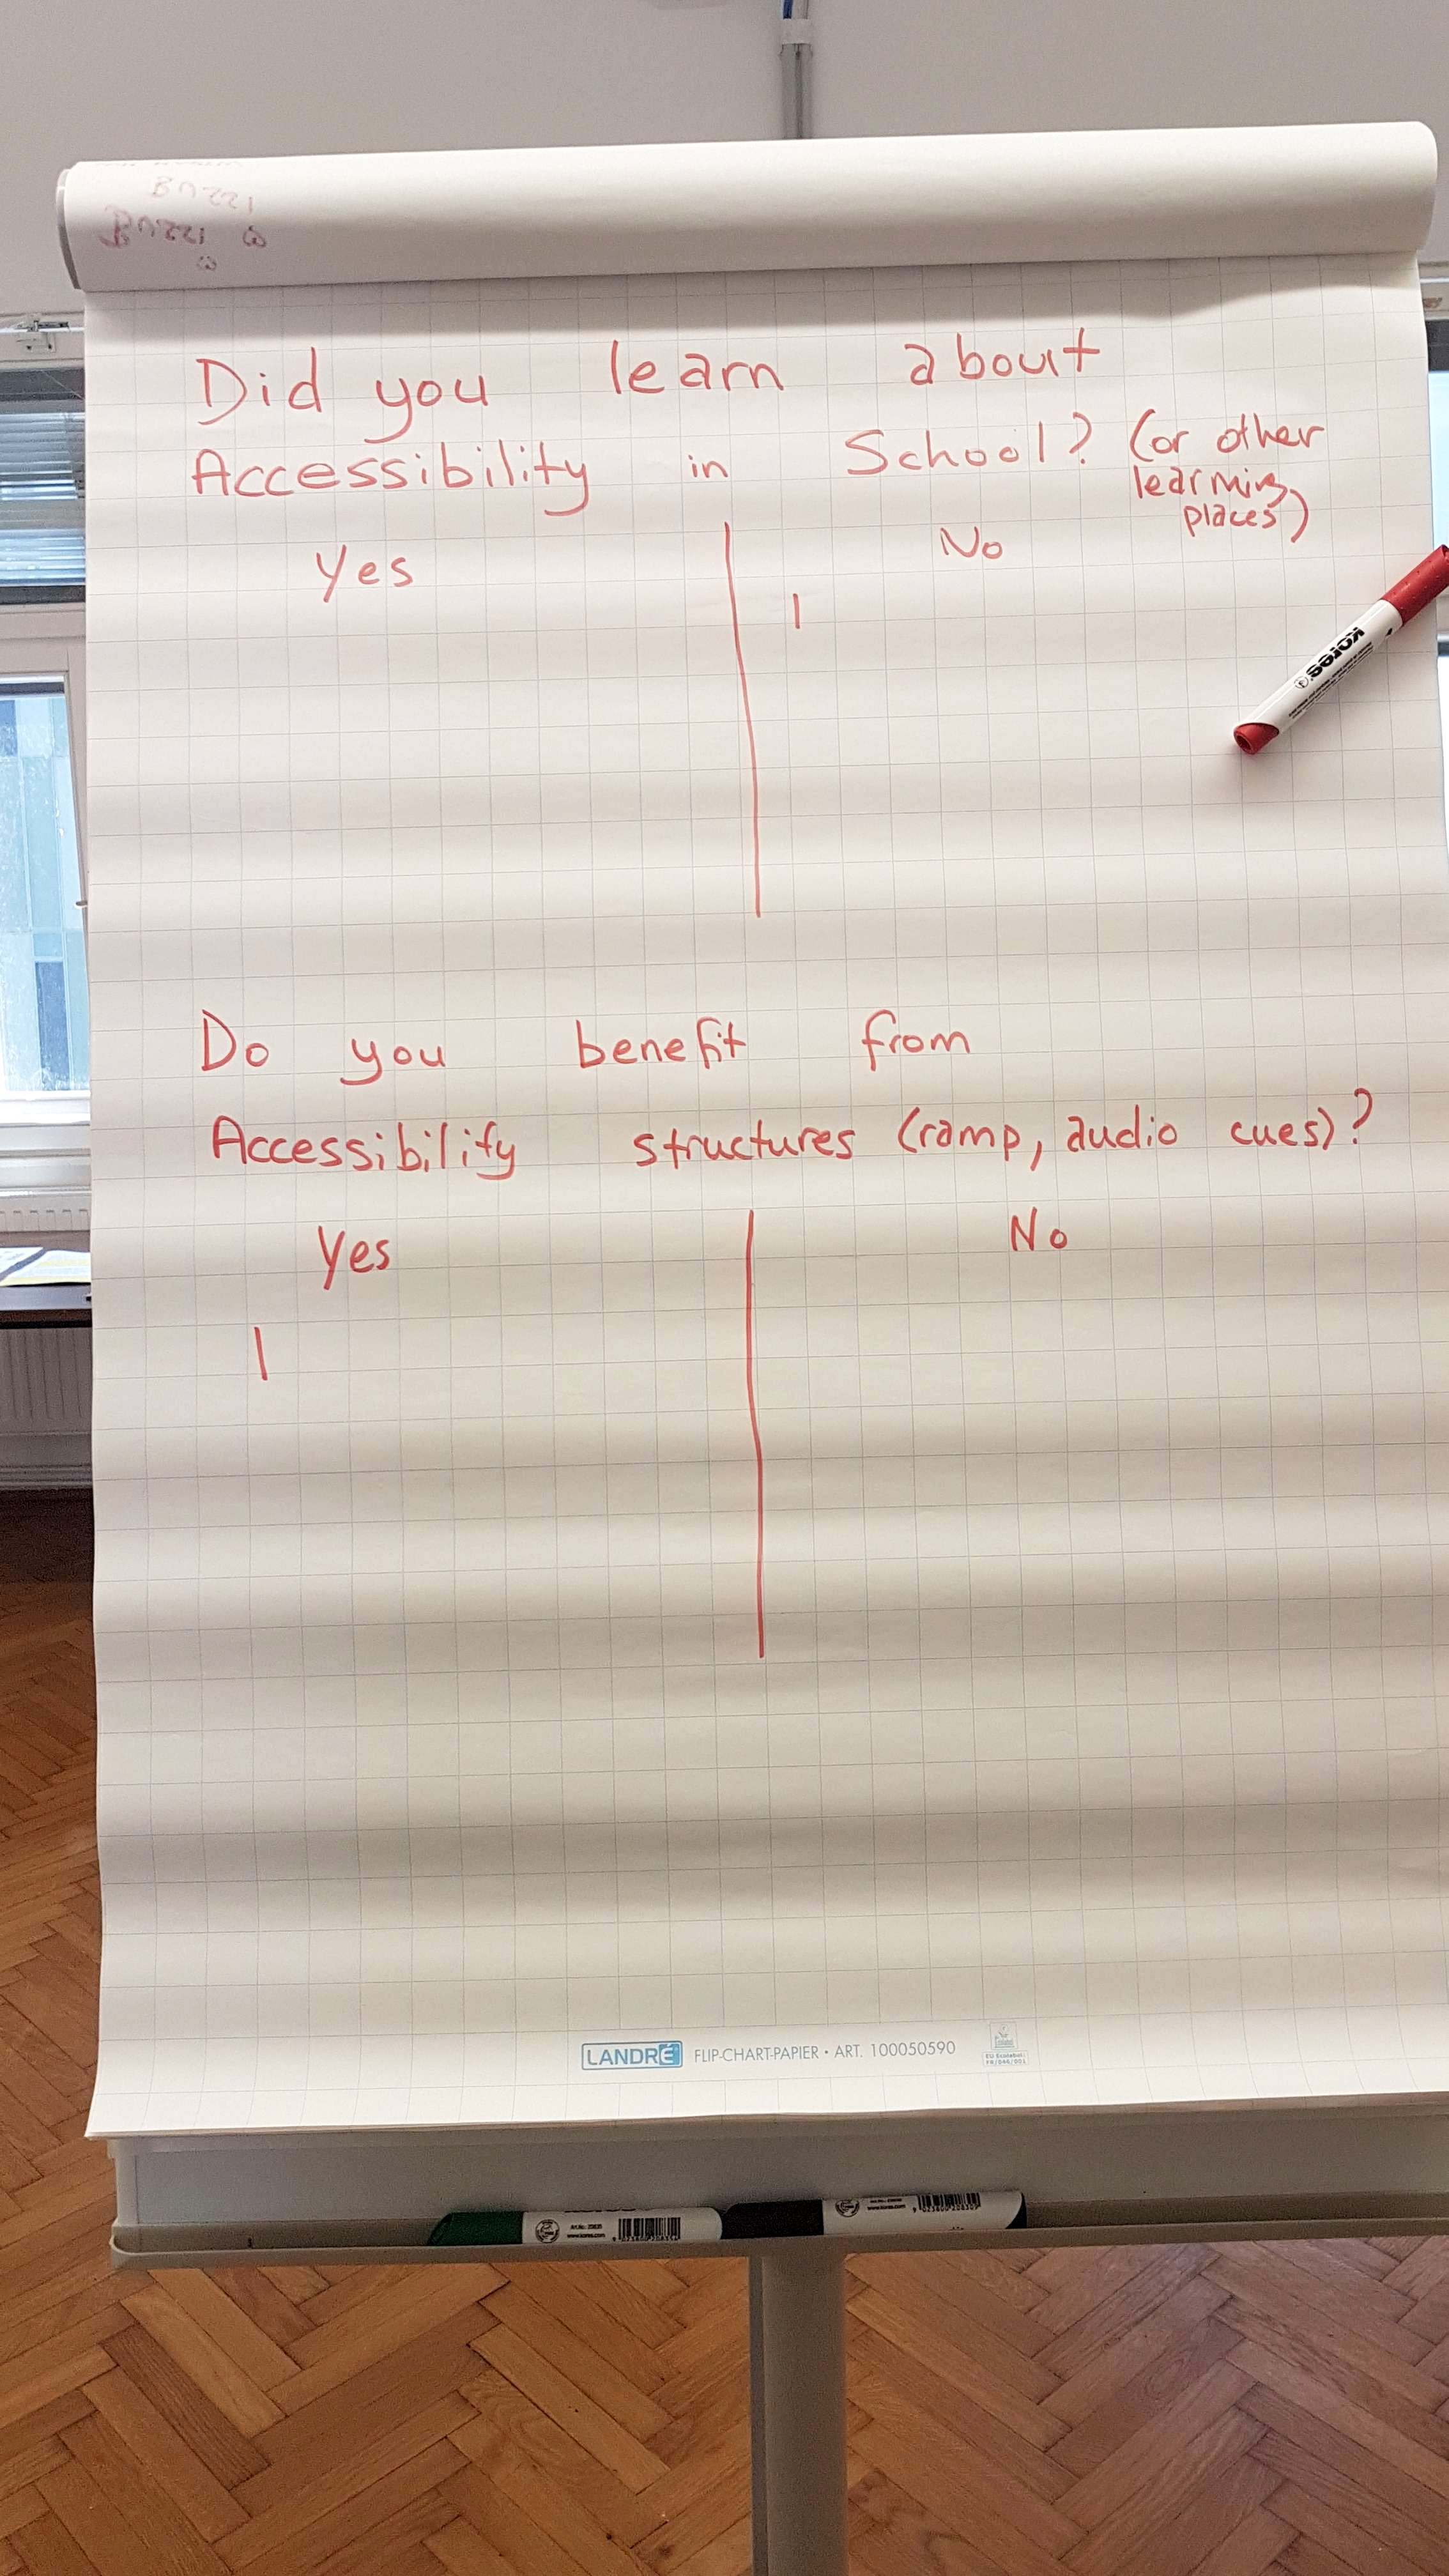 Did you learn about
Accessibility in School? (or other
learning
places)
Yes No
|
Do you benefit from
Accessibility structures (ramp, audio cues)?
Yes No
|
kores
LANDRÉ FLIP-CHART-PAPIER • ART. 100050590
EU Ecolabel:
FR/046/001